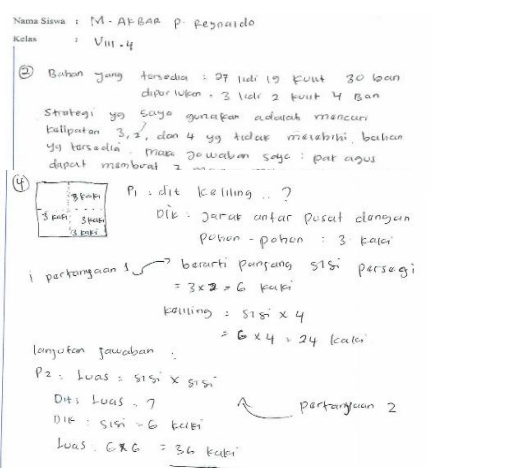 Nama Siswa : M. AKBAR P. Reynaldo
Kelas : VIII.4
② Bahan yang tersedia : 27 lidi 19 kulit 30 ban
diperlukan : 3 lidi 2 kulit 4 Ban
Strategi yg saya gunakan adalah mencari
kelipatan 3, 2, dan 4 yg tidak melebihi bahan
yg tersedia. maka jawaban saya : pak agus
dapat membuat 7
④ P1 : dit keliling .. ?
3 kaki
3 kaki 3 kaki
3 kaki
Dik : Jarak antar pusat dengan
pohon - pohon : 3 kaki
pertanyaan 1 berarti panjang sisi persegi
= 3 x 2 = 6 kaki
keliling : sisi x 4
= 6 x 4 = 24 kaki
lanjutan jawaban :
P2 : Luas = sisi x sisi
Dit : Luas . ?
pertanyaan 2
Dik : sisi = 6 kaki
Luas . 6x6 = 36 kaki